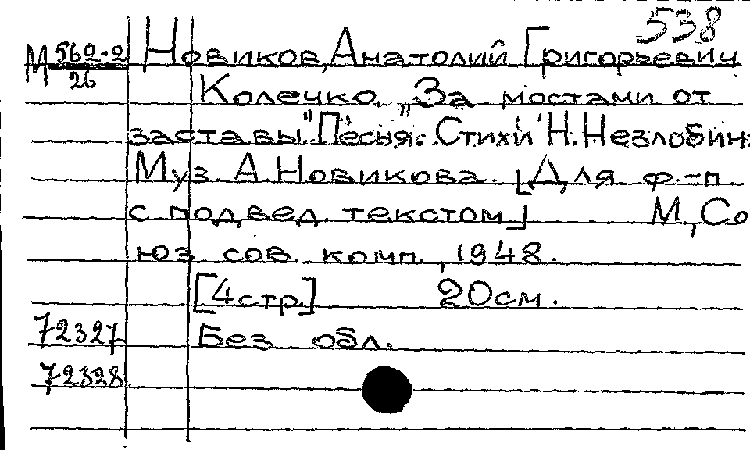 538
М 562-2/26 Новиков, Анатолий Григорьевич
Колечко. „За мостами от
заставы". Песня. Стихи Н. Незлобин
Муз. А. Новикова. [Для ф.-п.
с подвед. текстом] М., Со
юз сов. комп., 1948.
[4 стр.] 20 см.
72327 Без обл.
72328